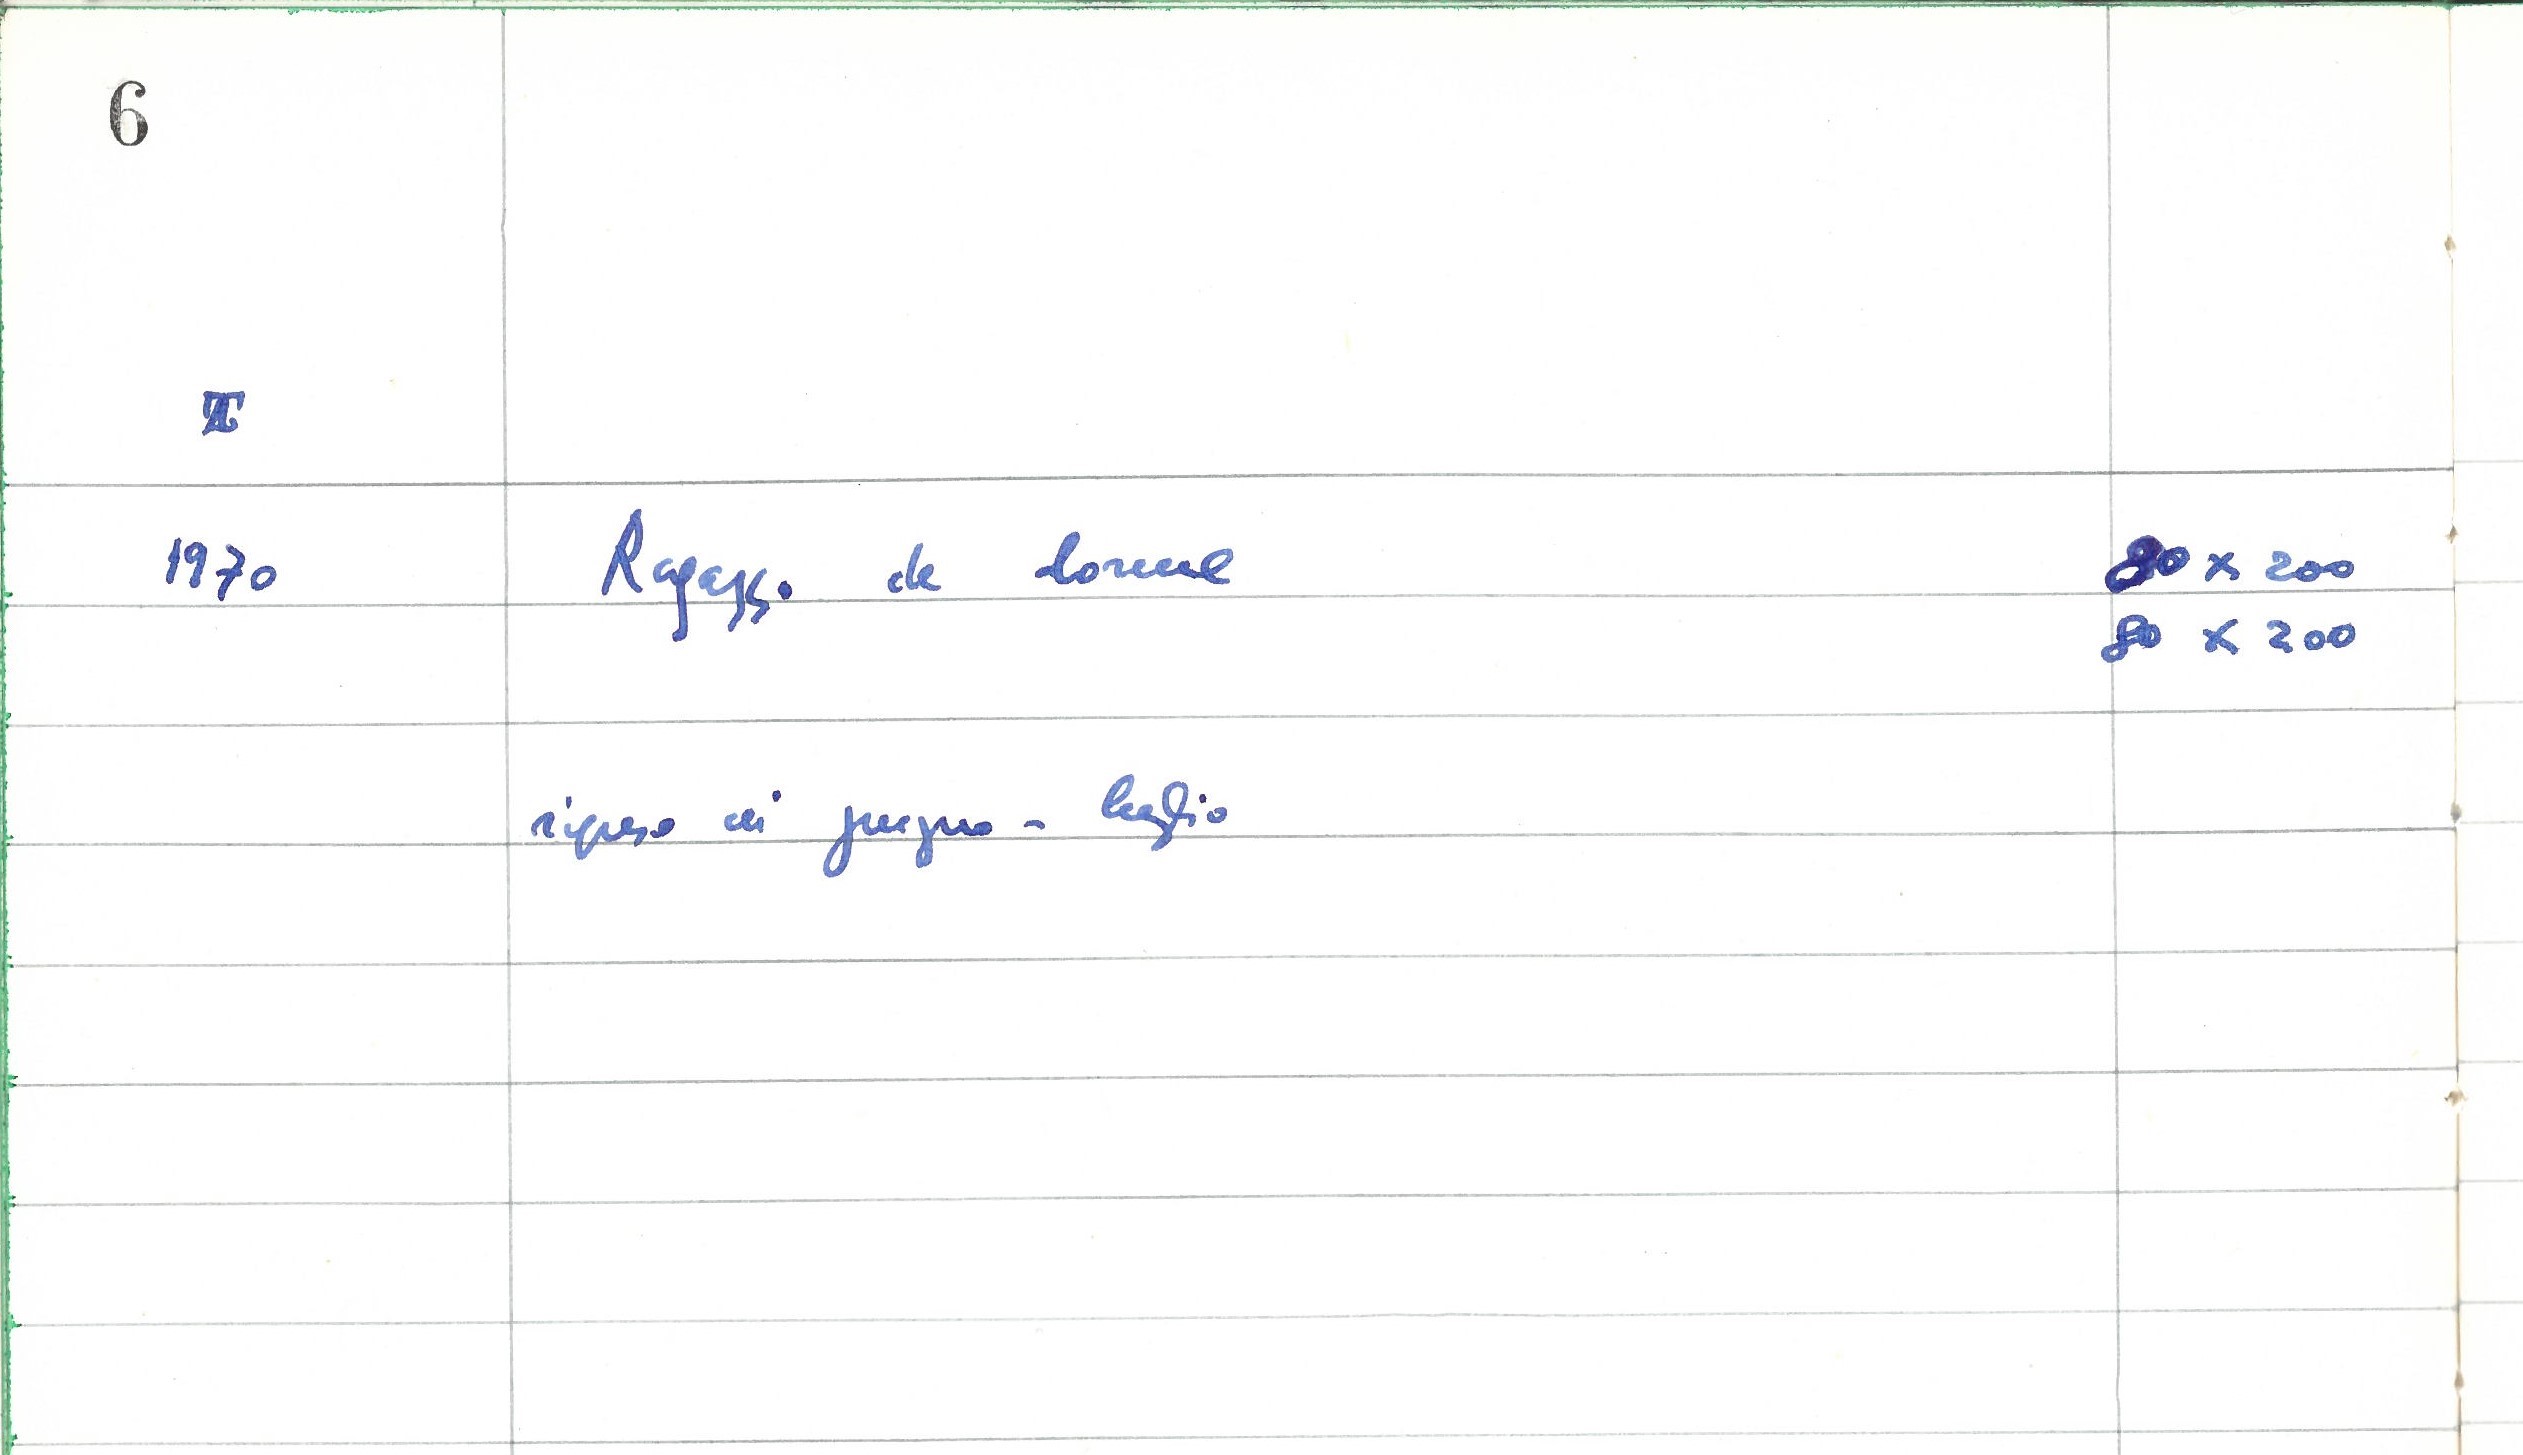 6
T
1970 Ragazzo che dorme 80 x 200
80 x 200
ripreso in giugno - luglio